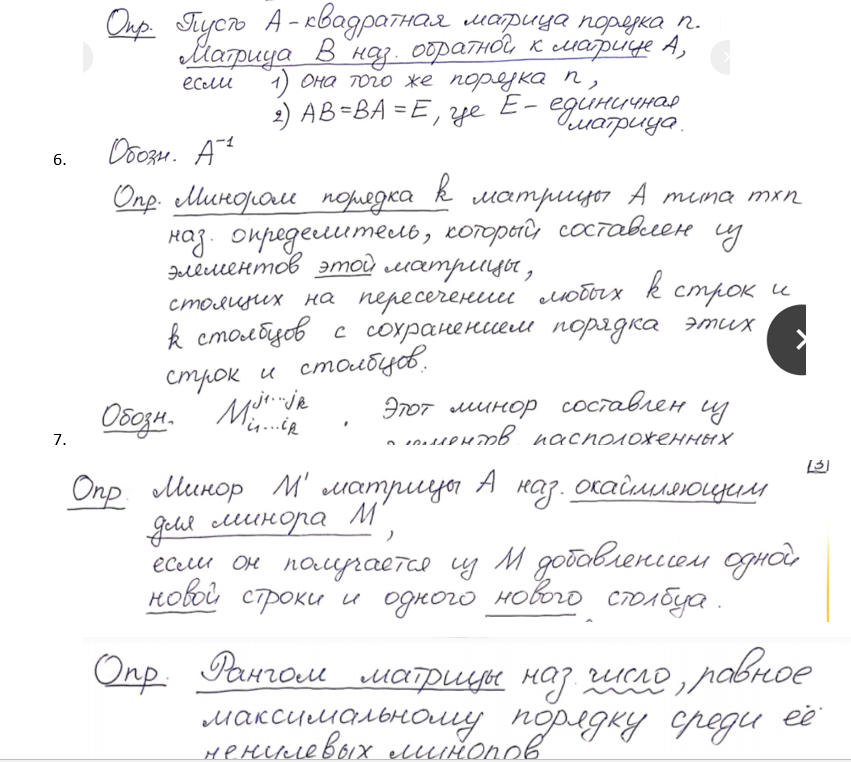 Опр. Пусть А – квадратная матрица порядка n.
Матрица В наз. обратной к матрице А,
если 1) она того же порядка n,
2) AB=BA=E, где E – единичная
матрица.
6. Обозн. A⁻¹
Опр. Минором порядка k матрицы А типа m×n
наз. определитель, который составлен из
элементов этой матрицы,
стоящих на пересечении любых k строк и
k столбцов с сохранением порядка этих
строк и столбцов.
Обозн. M^{j₁...j_k}_{i₁...i_k} . Этот минор составлен из
7. элементов, расположенных
[3]
Опр Минор M' матрицы А наз. окаймляющим
для минора М,
если он получается из М добавлением одной
новой строки и одного нового столбца.
Опр. Рангом матрицы наз. число, равное
максимальному порядку среди её
ненулевых миноров